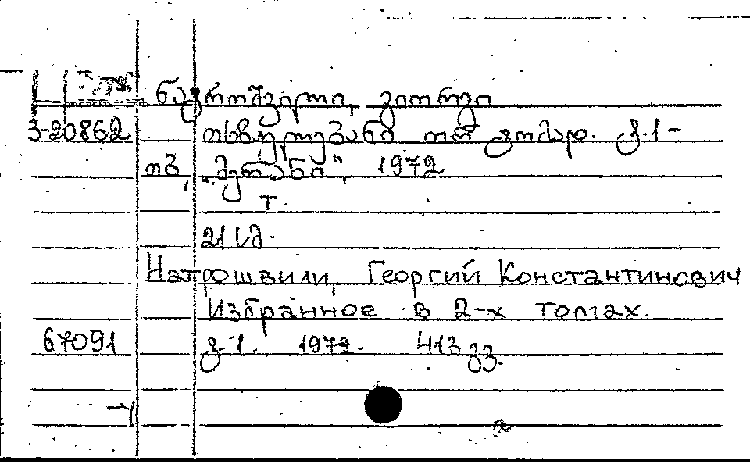 ნატროშვილი, გიორგი
3-20862 თხზულებანი ორ ტომად. ტ.1-
თბ, „მერანი", 1972
T.
21 სმ.
Натрошвили, Георгий Константинович
Избранное в 2-х томах.
67091 ტ.1. 1972. 413 გვ.